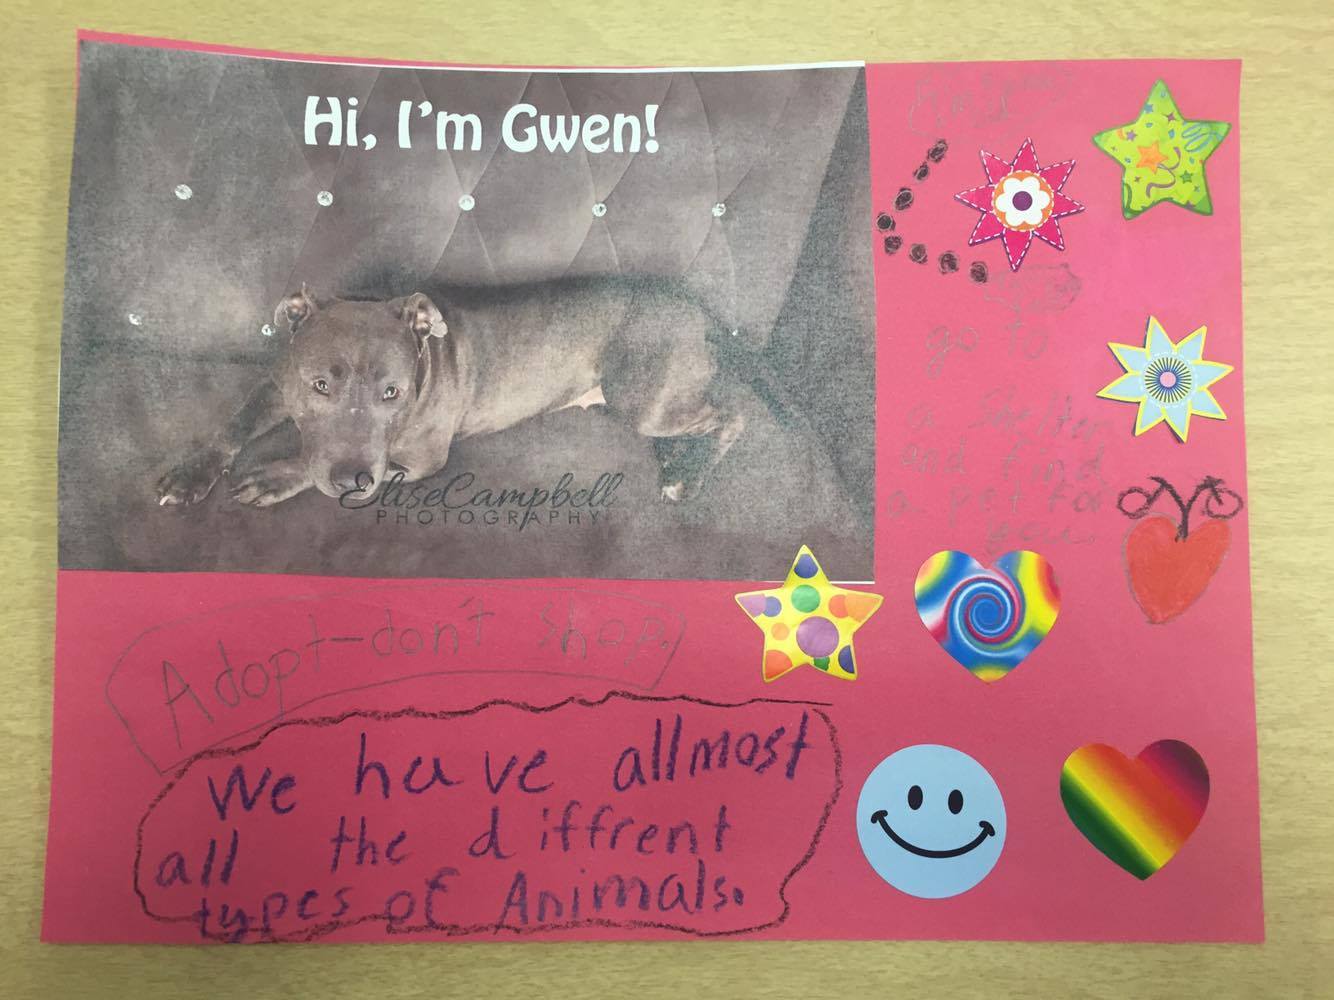 Hi, I'm Gwen!
EliseCampbell
PHOTOGRAPHY
go to
a Shelter
and find
a pet for
you.
Adopt-don't shop.
We have allmost
all the diffrent
types of Animals.